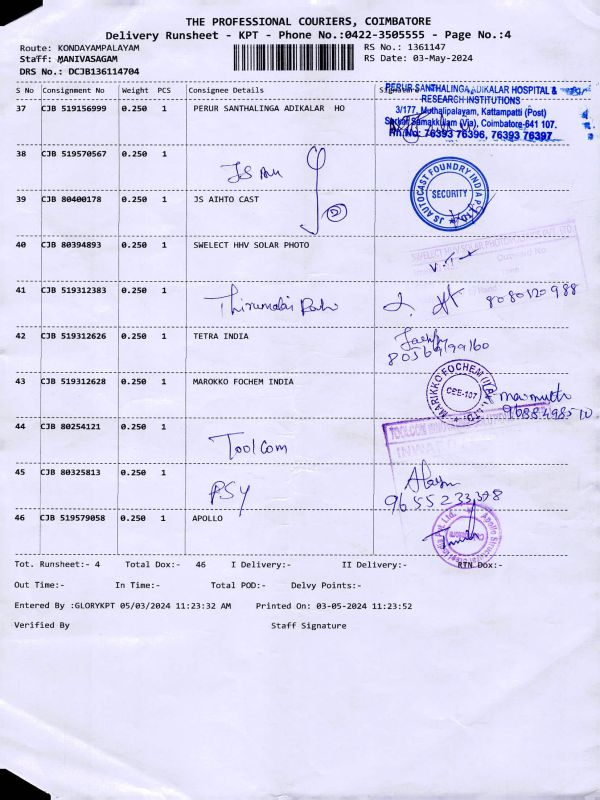 THE PROFESSIONAL COURIERS, COIMBATORE
Delivery Runsheet - KPT - Phone No.:0422-3505555 - Page No.:4
Route: KONDAYAMPALAYAM RS No.: 1361147
Staff: MANIVASAGAM RS Date: 03-May-2024
DRS No.: DCJB136114704
S No Consignment No Weight PCS Consignee Details
PERUR SANTHALINGA ADIKALAR HOSPITAL &
RESEARCH INSTITUTIONS
3/177, Muthalipalayam, Kattampatti (Post)
Sarkar Samakkulam (Via), Coimbatore-641 107.
PH No: 76393 76396, 76393 76397
37 CJB 519156999 0.250 1 PERUR SANTHALINGA ADIKALAR HO
38 CJB 519570567 0.250 1
JS AUTOCAST FOUNDRY INDIA
SECURITY
39 CJB 80400178 0.250 1 JS AIHTO CAST
40 CJB 80394893 0.250 1 SWELECT HHV SOLAR PHOTO
SWELECT HHV SOLAR
V.T
41 CJB 519312383 0.250 1
8080120988
42 CJB 519312626 0.250 1 TETRA INDIA
43 CJB 519312628 0.250 1 MAROKKO FOCHEM INDIA
MARIKKO FOCHEM
44 CJB 80254121 0.250 1
Toolcom
TOOLCOM
45 CJB 80325813 0.250 1
PSY
46 CJB 519579058 0.250 1 APOLLO
Tot. Runsheet:- 4 Total Dox:- 46 I Delivery:- II Delivery:- RTN Dox:-
Out Time:- In Time:- Total POD:- Delvy Points:-
Entered By :GLORYKPT 05/03/2024 11:23:32 AM Printed On: 03-05-2024 11:23:52
Verified By Staff Signature